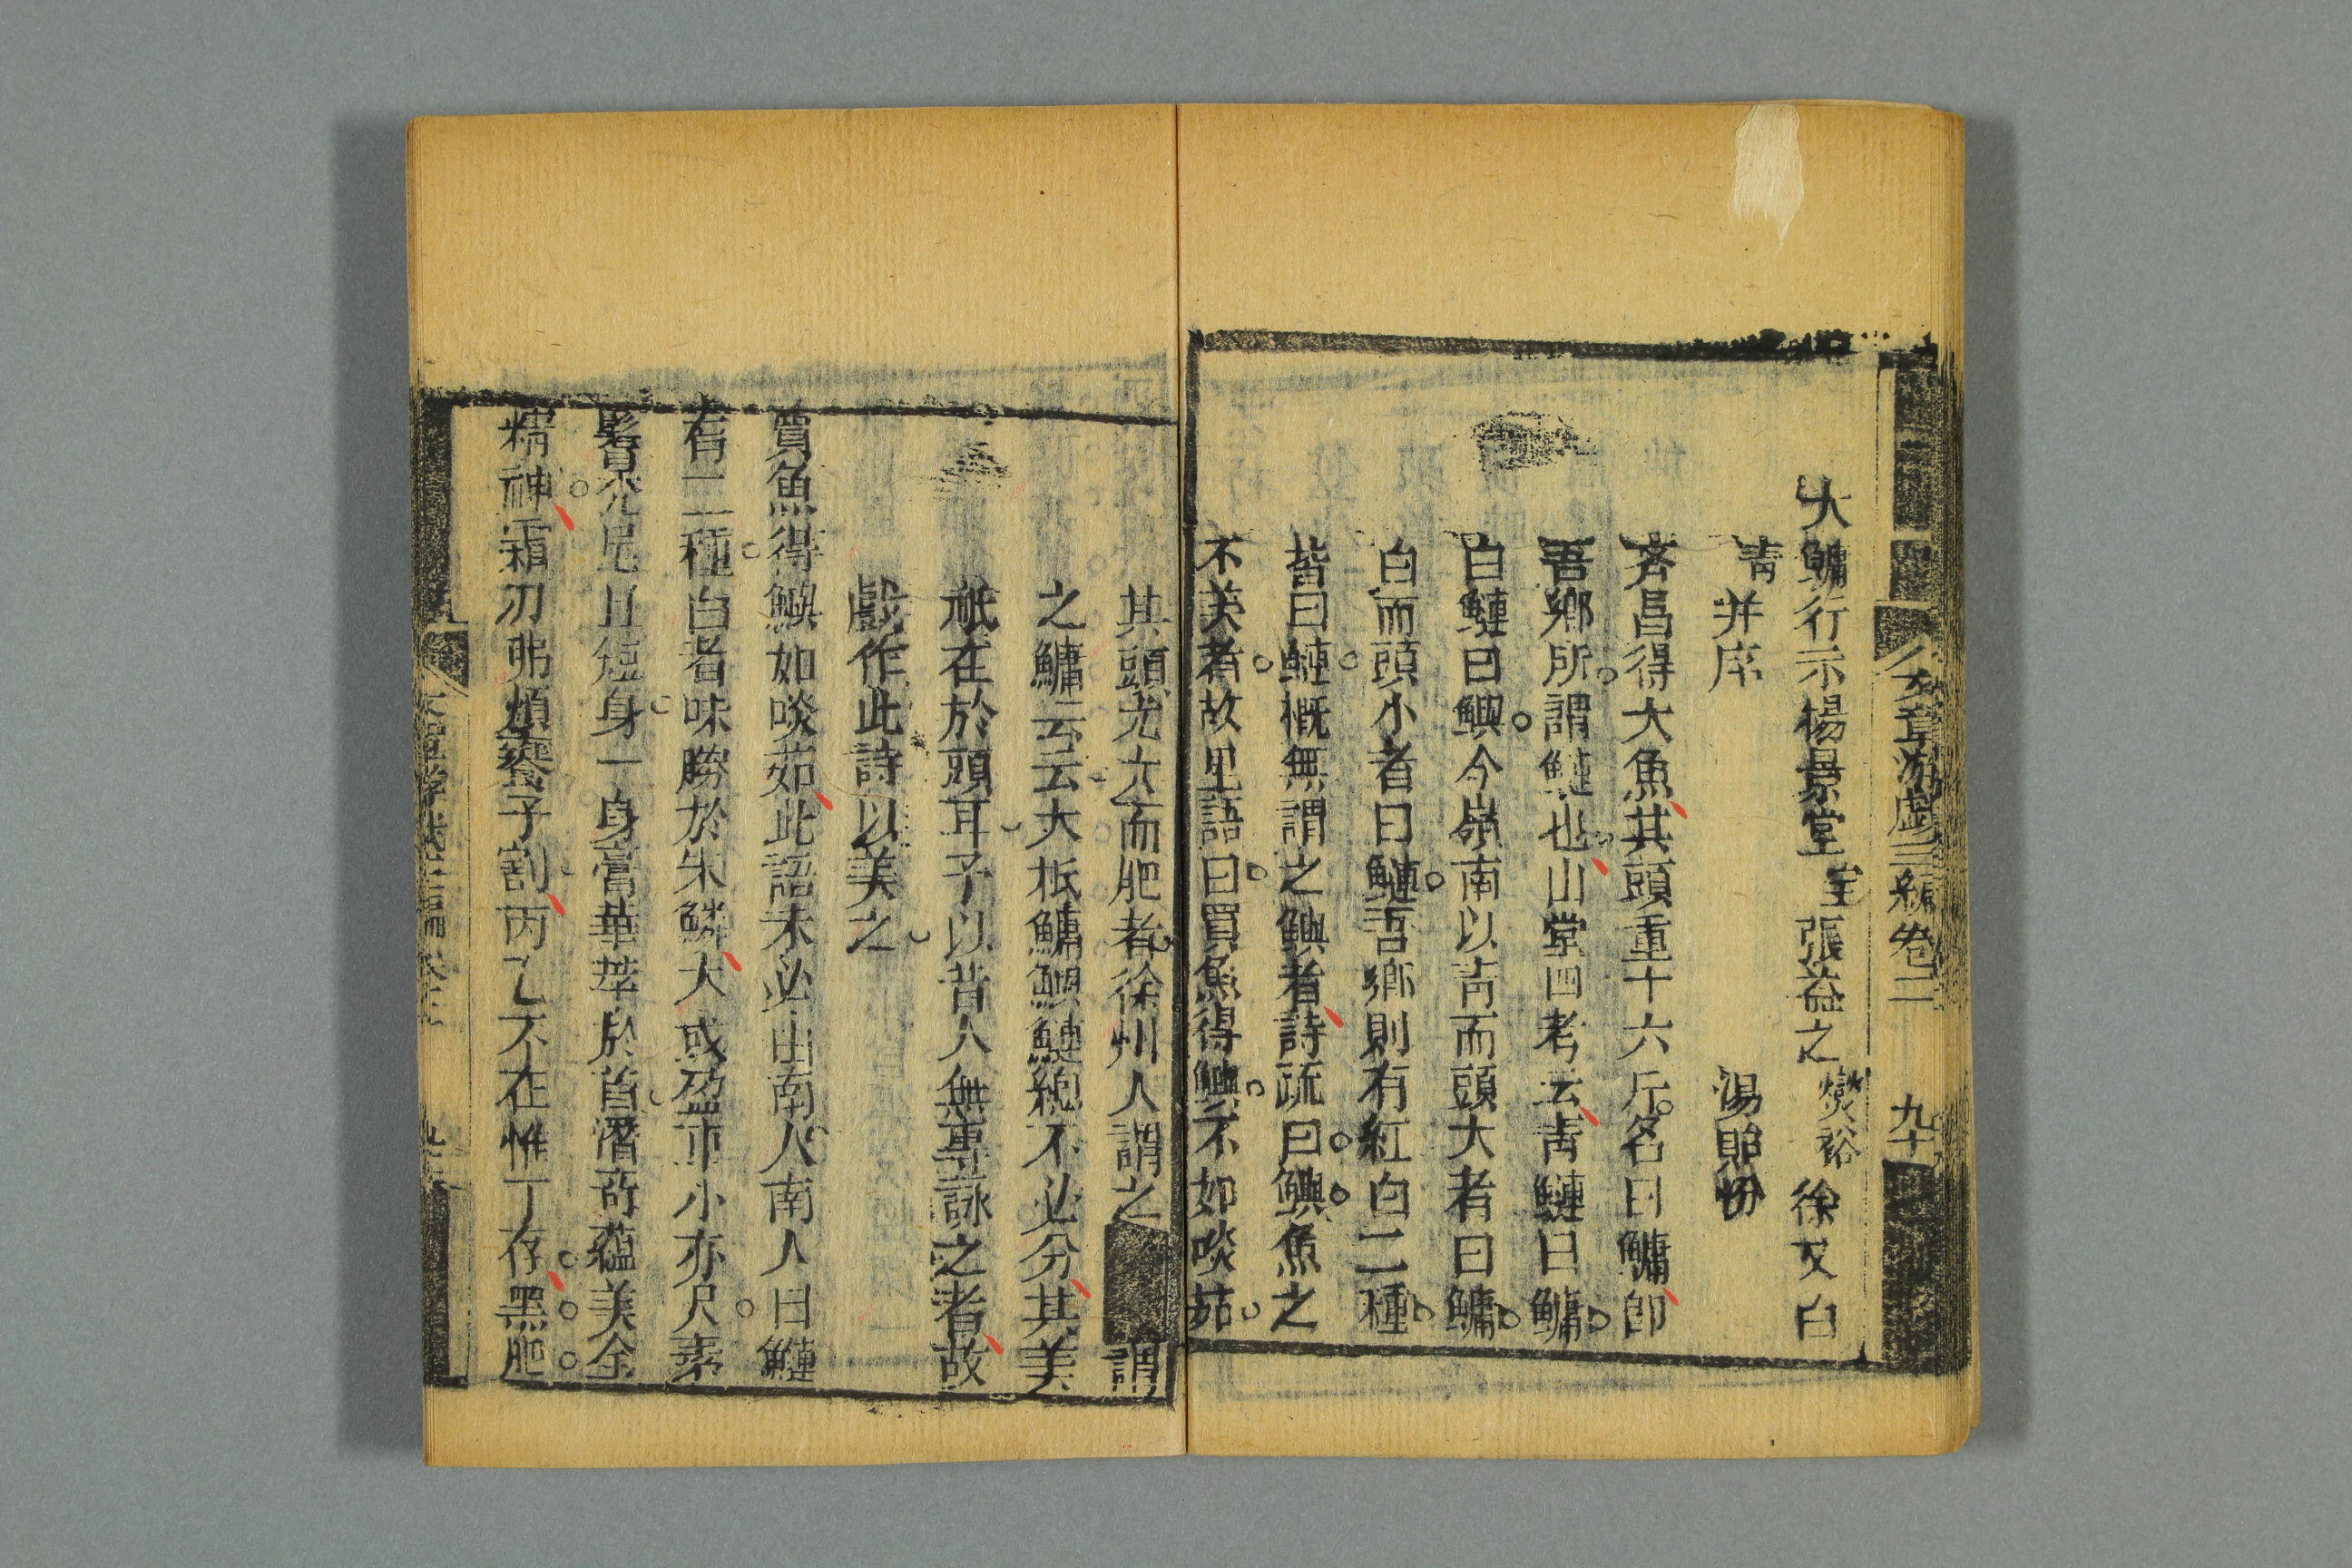 文章游戲三編卷二 九十
大鱅行示楊景堂 張益之 燮裕 徐又白
青 并序 湯貽汾
齊昌得大魚其頭重十六斤名曰鱅卽
吾鄉所謂鰱也山堂四考云青鰱曰鱅
白鰱曰鱮今嶺南以青而頭大者曰鱅
白而頭小者曰鰱吾鄉則有紅白二種
皆曰鰱概無謂之鱮者詩疏曰鱮魚之
不美者故里語曰買魚得鱮不如啖茹
其頭尤大而肥者徐州人謂之 謂
之鱅云云大抵鱅鱮鰱總不必分其美
祇在於頭耳予以昔人無專詠之者故
戲作此詩以美之
買魚得鱮如啖茹此語未必由南人南人曰鰱
有二種白者味勝於朱鱗大或盈車小亦尺素
鬐禿尾且短身一身膏華萃於首潛所蘊美全
精神霜刃弗煩饔子割丙乙不在惟丁存黑肥